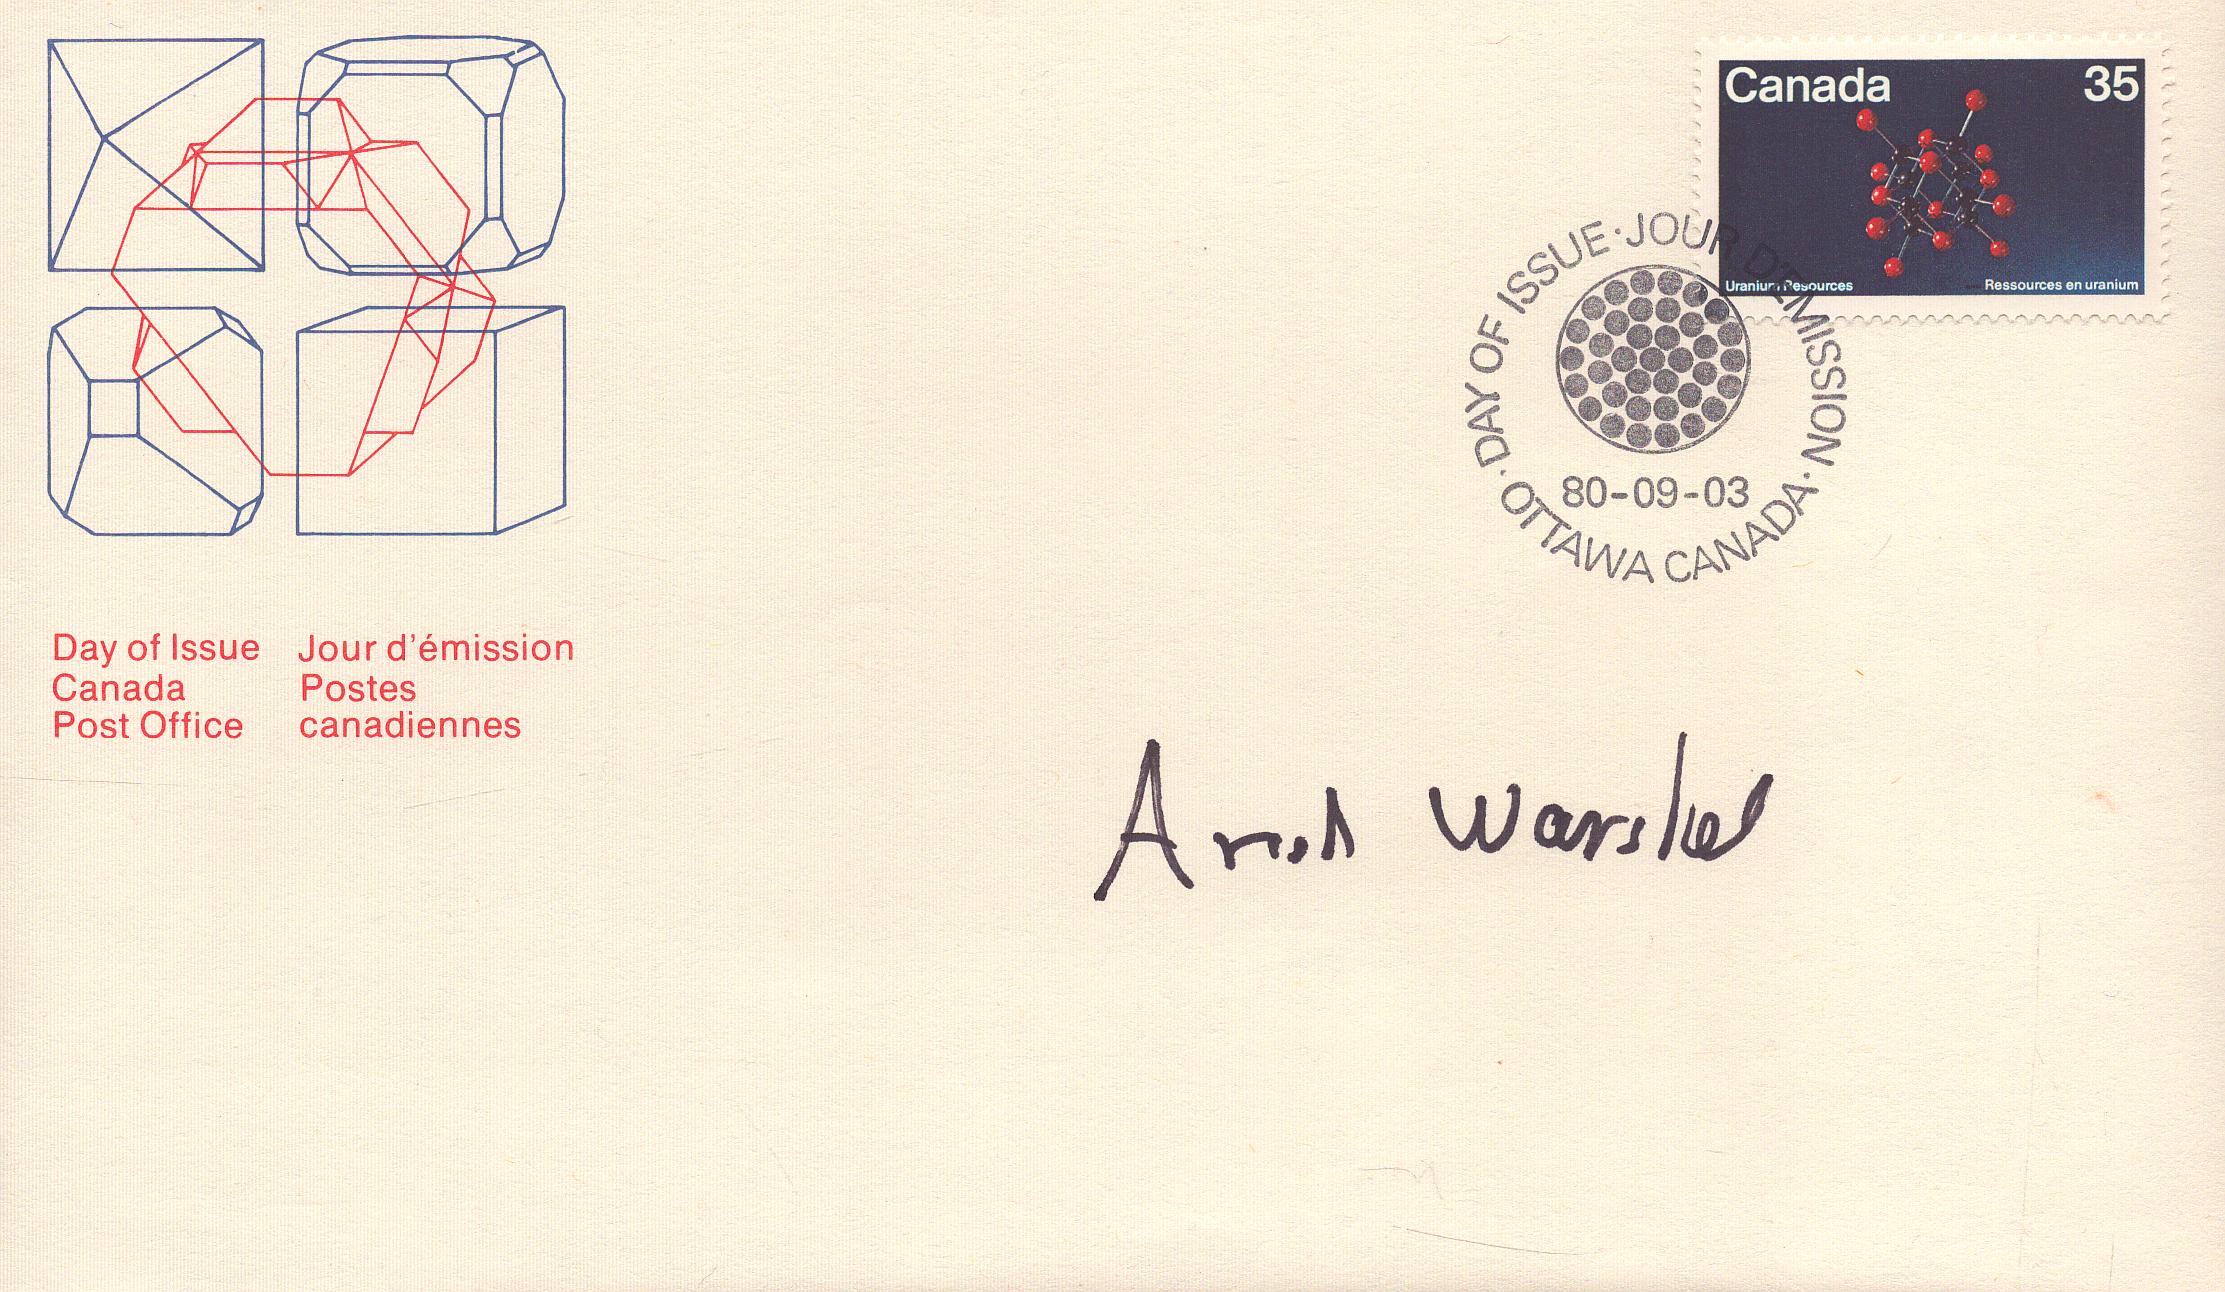 Canada 35
Uranium Resources Ressources en uranium
DAY OF ISSUE · JOUR D'ÉMISSION · OTTAWA CANADA ·
80-09-03
Day of Issue Jour d'émission
Canada Postes
Post Office canadiennes
Arieh Warshel